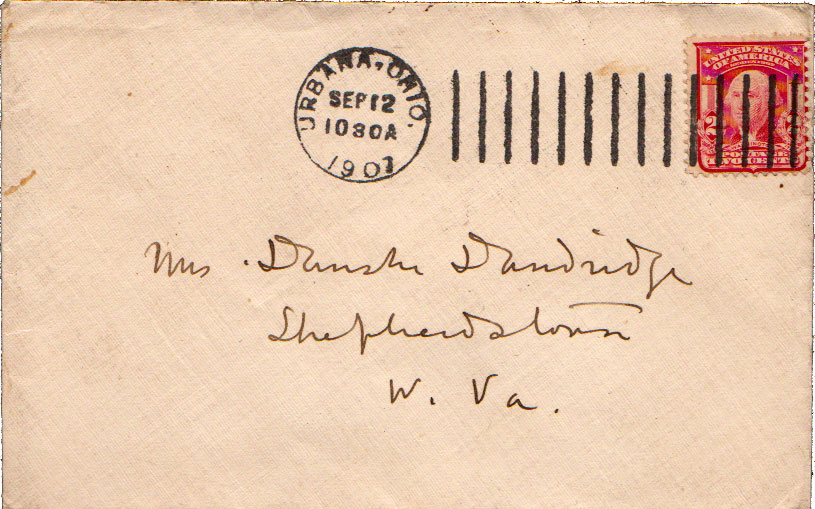 URBANA, OHIO.
SEP 12
10 30 A
1907
UNITED STATES
OF AMERICA
2
TWO CENTS
Mrs Danske Dandridge
Shepherdstown
W. Va.